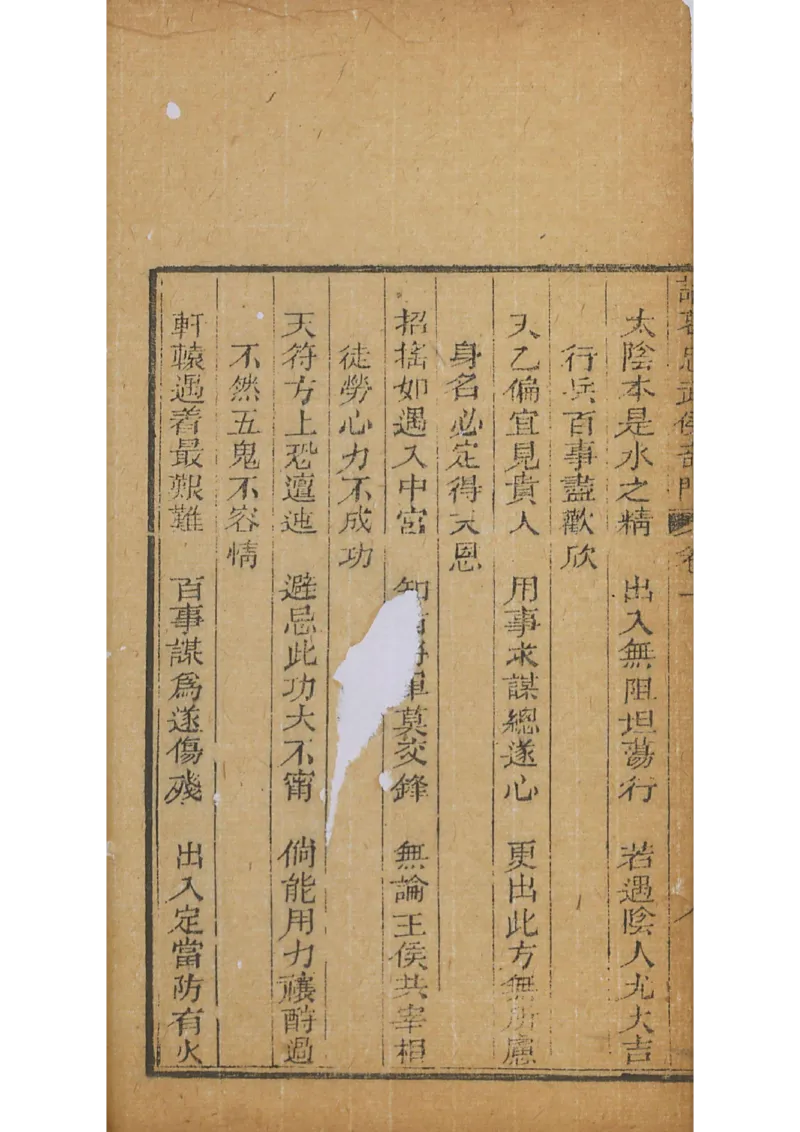 諸葛忠武侯奇門 卷一
太陰本是水之精 出入無阻坦蕩行 若遇陰人尤大吉
行兵百事盡歡欣
天乙偏宜見貴人 用事求謀總遂心 更出此方無所慮
身名必定得天恩
招搖如遇入中宮 知 軍莫交鋒 無論王侯共宰相
徒勞心力不成功
天符方上恐邅迍 避忌此功大不甯 倘能用力禳酧過
不然五鬼不容情
軒轅遇着最艱難 百事謀爲遂傷殘 出入定當防有火